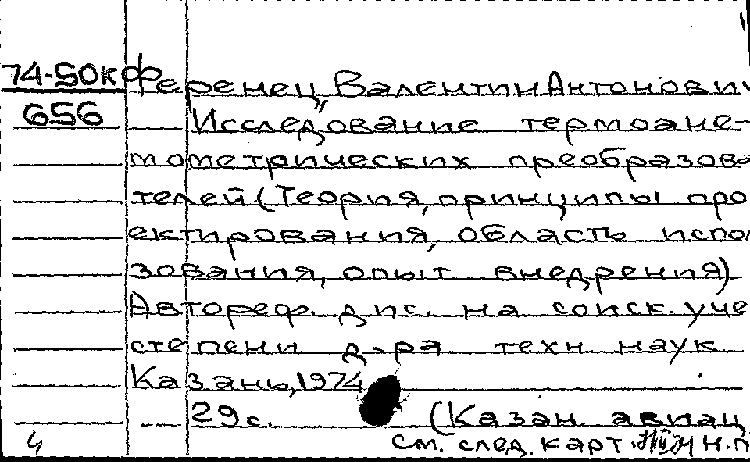 74-50кф Ференец, Валентин Антонович
656
Исследование термоане-
мометрических преобразова
телей (Теория, принципы про
ектирования, область испол
зования, опыт внедрения)
Автореф. дис. на соиск. уче
степени д-ра техн. наук
Казань, 1974
29 с. (Казан. авиац
4 см. след. карт. н.п